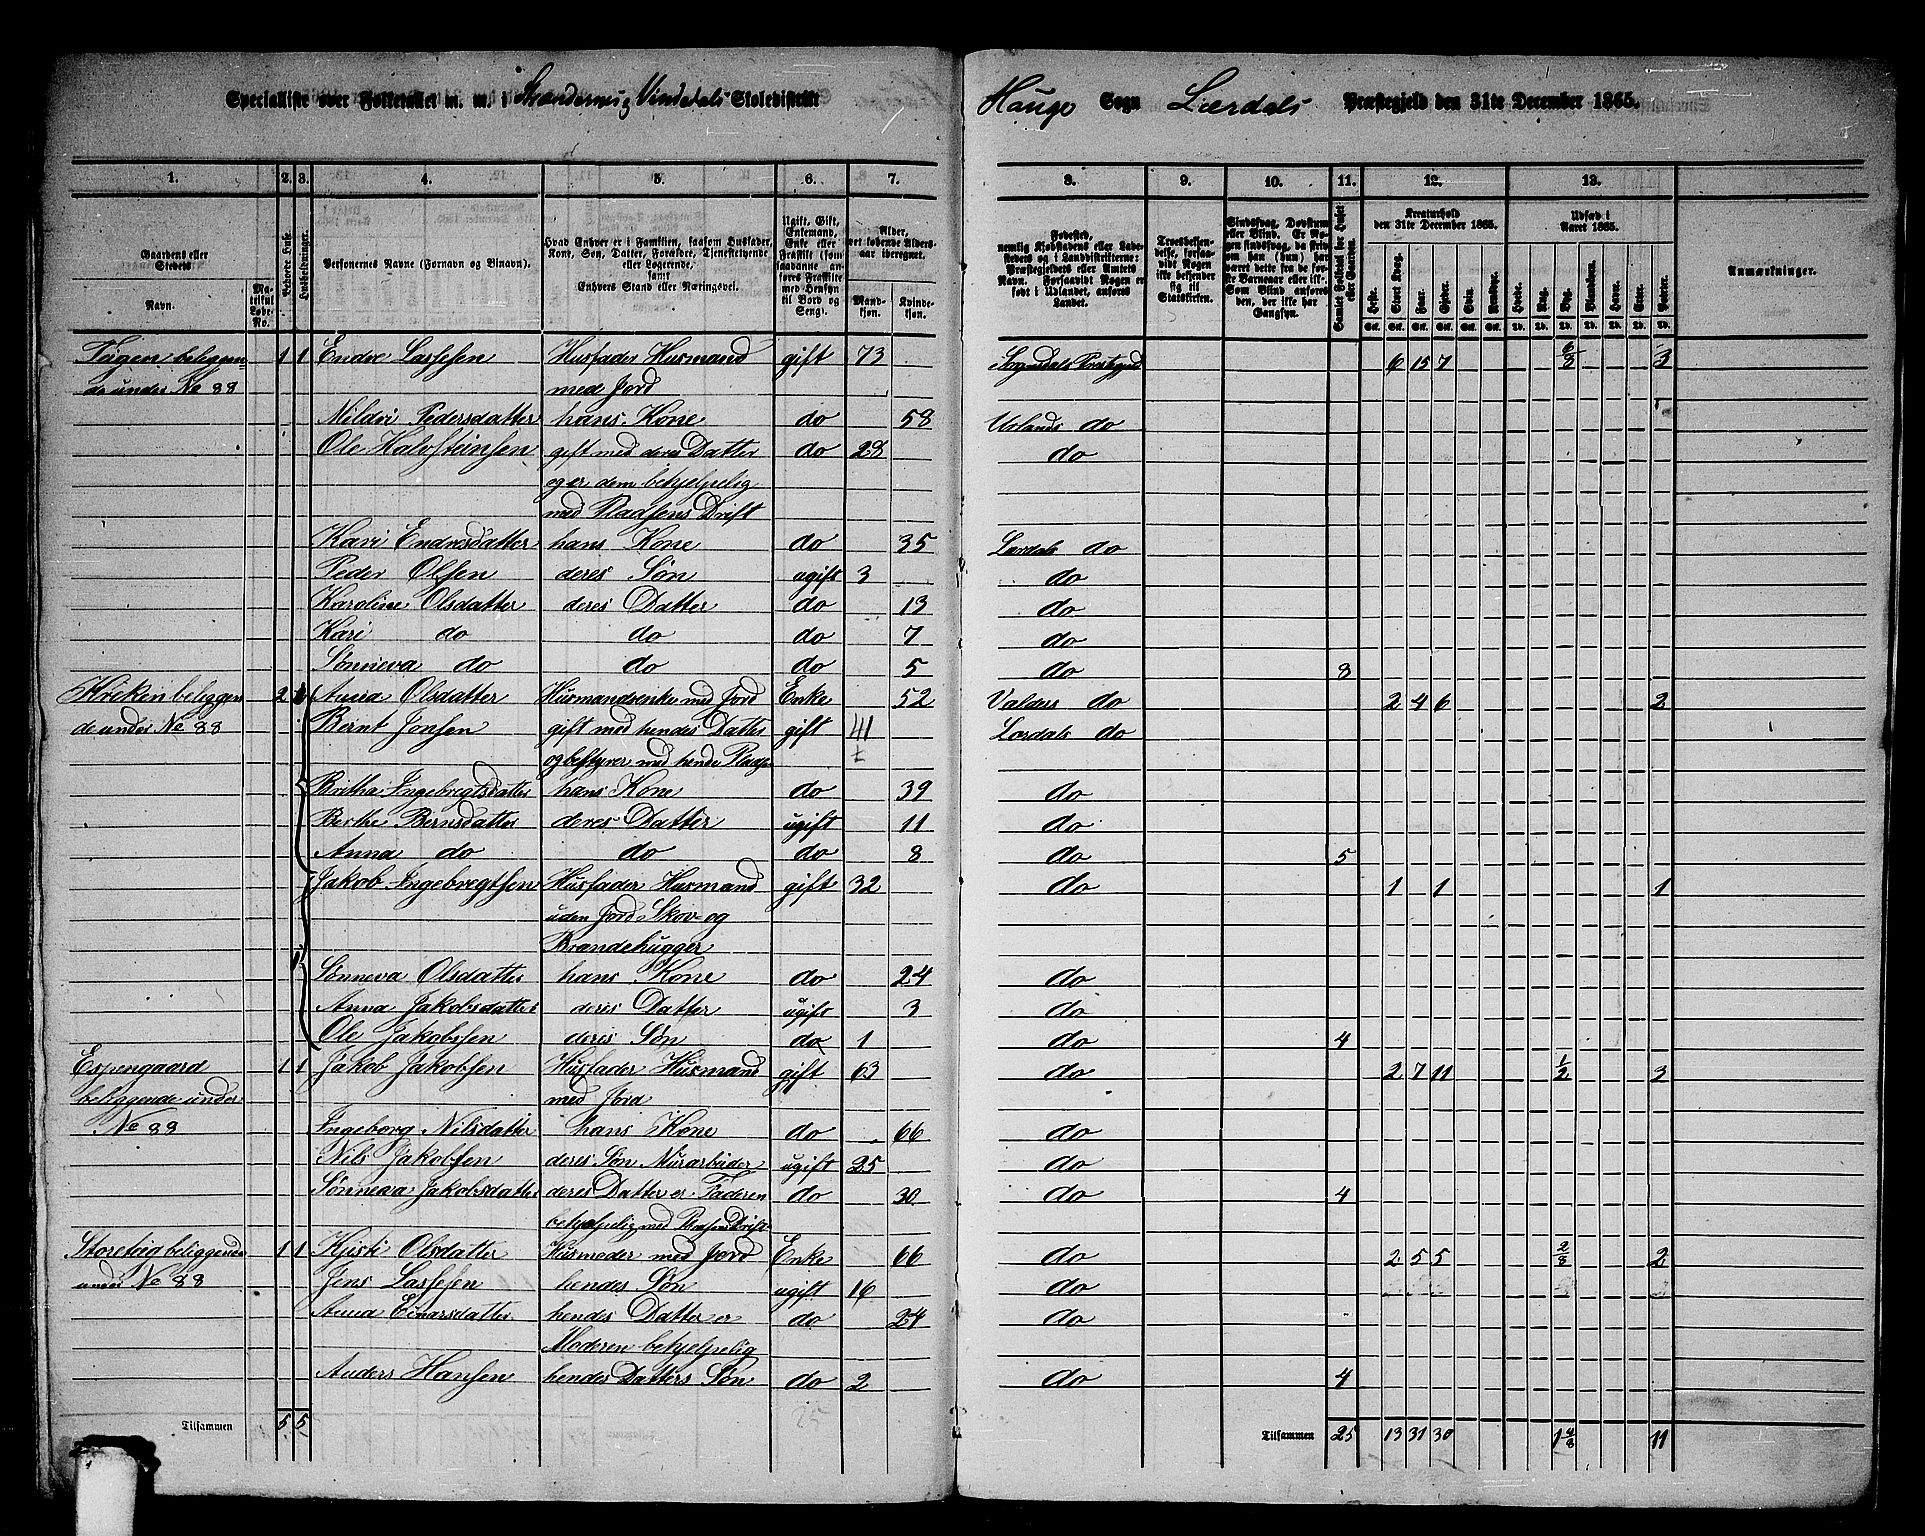 Specialliste over Folketallet m. m. i Skoledistrikt
Hauge Sogn Lærdals Præstegjeld den 31te December 1865.
1. 2. 3. 4. 5. 6. 7. 8. 9. 10. 11. 12. 13.
Gaardens eller Stedets
Navn.
Matrikul Løbe-No.
Beboede Huse.
Husholdninger.
Personernes Navne (Fornavn og Binavn).
Hvad Enhver er i Familien, saasom Husfader, Kone, Søn, Datter, Forældre, Tjenestetyende eller Logerende, samt Enhvers Stand eller Næringsvei.
Ugift, Gift, Enkemand, Enke eller Fraskilt (som saadanne anføres Fraskilte med Hensyn til Bord og Seng).
Alder, det løbende Alders-aar iberegnet.
Mandkjøn. Kvindekjøn.
Fødested, nemlig Kjøbstadens eller Ladestedets og i Landdistrikterne: Præstegjeldets eller Amtets Navn. Forsaavidt Nogen er født i Udlandet, anføres Landet.
Troesbekjendelse, forsaavidt Nogen ikke bekjender sig til Statskirken.
Sindssvag, Døvstum eller Blind. Er Nogen sindssvag, da hvorvidt
Samlet Folketal for Huset eller Gaarden.
Kreaturhold den 31te December 1865.
Heste. Stort Kvæg. Faar. Gjeder. Sviin. Rensdyr.
Udsæd i Aaret 1865.
Hvede. Rug. Byg. Blandkorn. Havre. Erter. Poteter.
Anmærkninger.
Teigen beliggen- 1 1 Endre Lassesen Husfader Husmand gift 73 Sogndals Præstegjeld 6 15 7 6/8 3
de under No 88 med Jord
Mildri Pedersdatter hans Kone do 58 Urlands do
Ole Halvsteinsen gift med deres Datter do 28 do
og er dem behjelpelig
med Pladsens Drift
Kari Endresdatter hans Kone do 35 Lærdals do
Peder Olsen deres Søn ugift 3 do
Karoline Olsdatter deres Datter do 13 do
Kari do do do 7 do
Sønneva do do do 5 do 8
Kreken beliggen 2 Anna Olsdatter Husmandsenke med Jord Enke 52 Valders do 2 4 6 2
de under No 88 Bernt Jonsen gift med hendes Datter gift 41 Lærdals do
og bestyrer med hende Pladsen
Britha Ingebregtsdatter hans Kone do 39 do
Berthe Berntsdatter deres Datter ugift 11 do
Anna do do do 8 do 5
Jakob Ingebregtsen Husfader Husmand gift 32 do 1 1 1
uden Jord Skov og
Brændehugger
1 Sønneva Olsdatter hans Kone do 24 do
Anna Jakobsdatter deres Datter ugift 3 do
Ole Jakobsen deres Søn do 1 do 4
Espengaard 1 1 Jakob Jakobsen Husfader Husmand gift 63 do 2 7 11 1/2 3
beliggende under med Jord
No 88 Ingeborg Nilsdatter hans Kone do 66 do
Nils Jakobsen deres Søn Murarbeider ugift 25 do
Sønneva Jakobsdatter deres Datter er Faderen do 30 do 4
behjelpelig med Pladsens Drift
Storeteig beliggende 1 1 Kjisti Olsdatter Husmoder med Jord Enke 66 do 2 5 5 2/8 2
under No 88 Jens Lassesen hendes Søn ugift 16 do
Anna Einarsdatter hendes Datter er do 24 do
Moderen behjelpelig
Anders Hansen hendes Datters Søn do 2 do 4
Tilsammen 5 5 Tilsammen 25 13 31 30 1 4/8 11